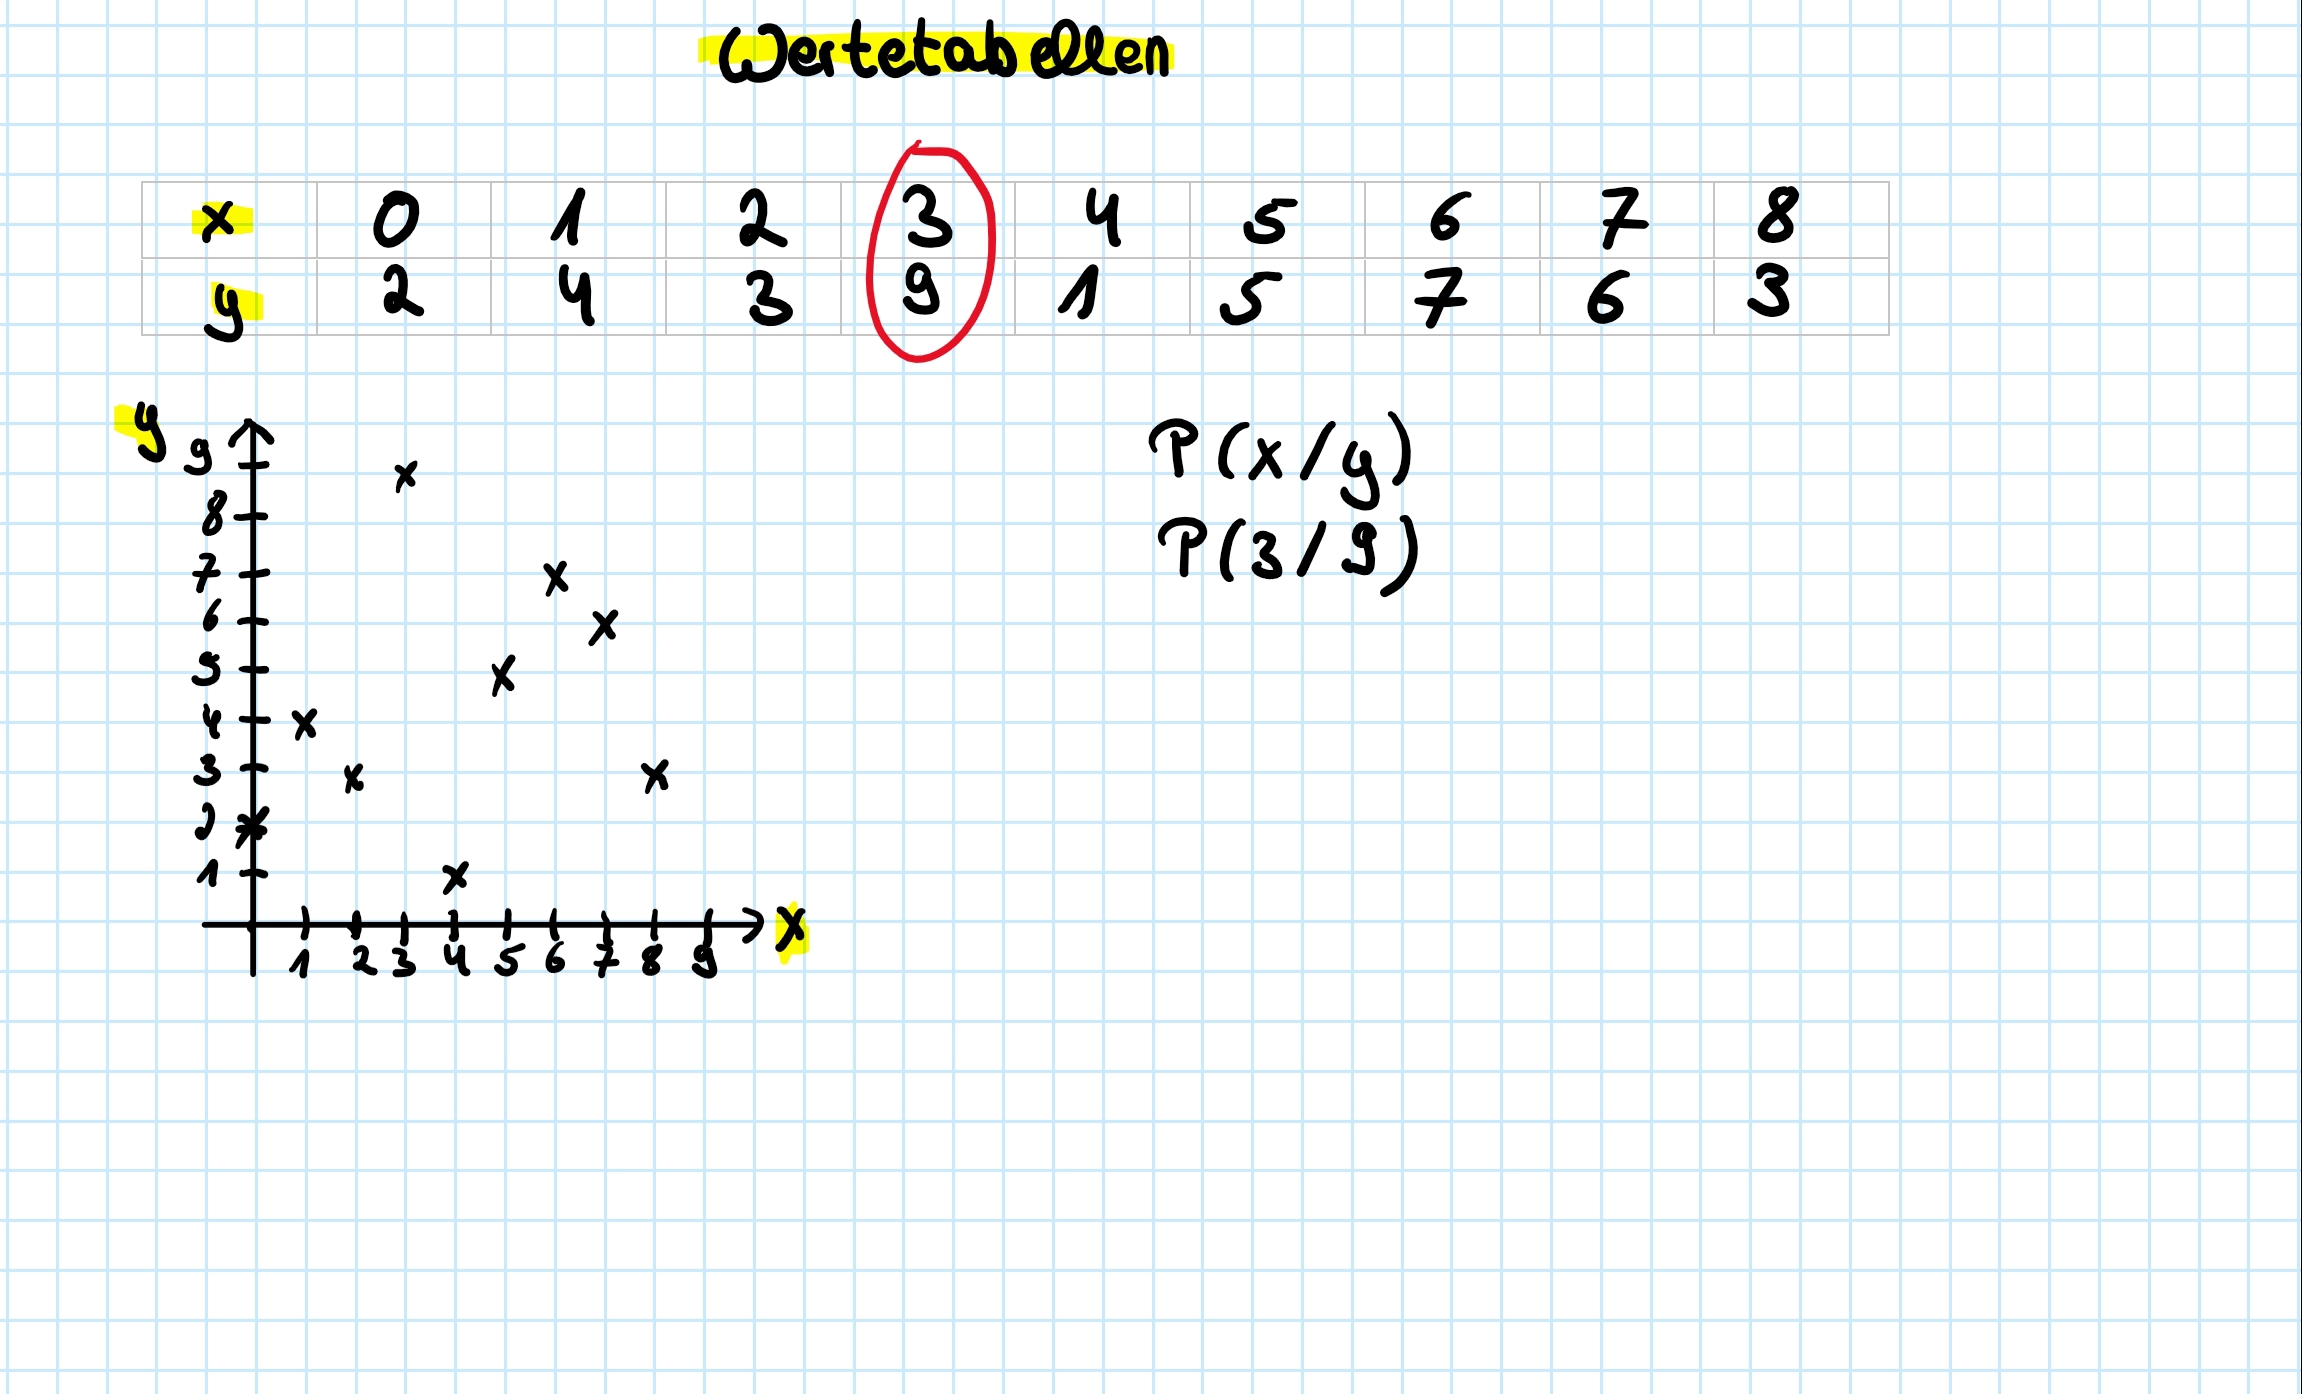 Wertetabellen
x 0 1 2 3 4 5 6 7 8
y 2 4 3 9 1 5 7 6 3
y
9
8
7
6
5
4
3
2
1
1 2 3 4 5 6 7 8 9 x
P(x/y)
P(3/9)